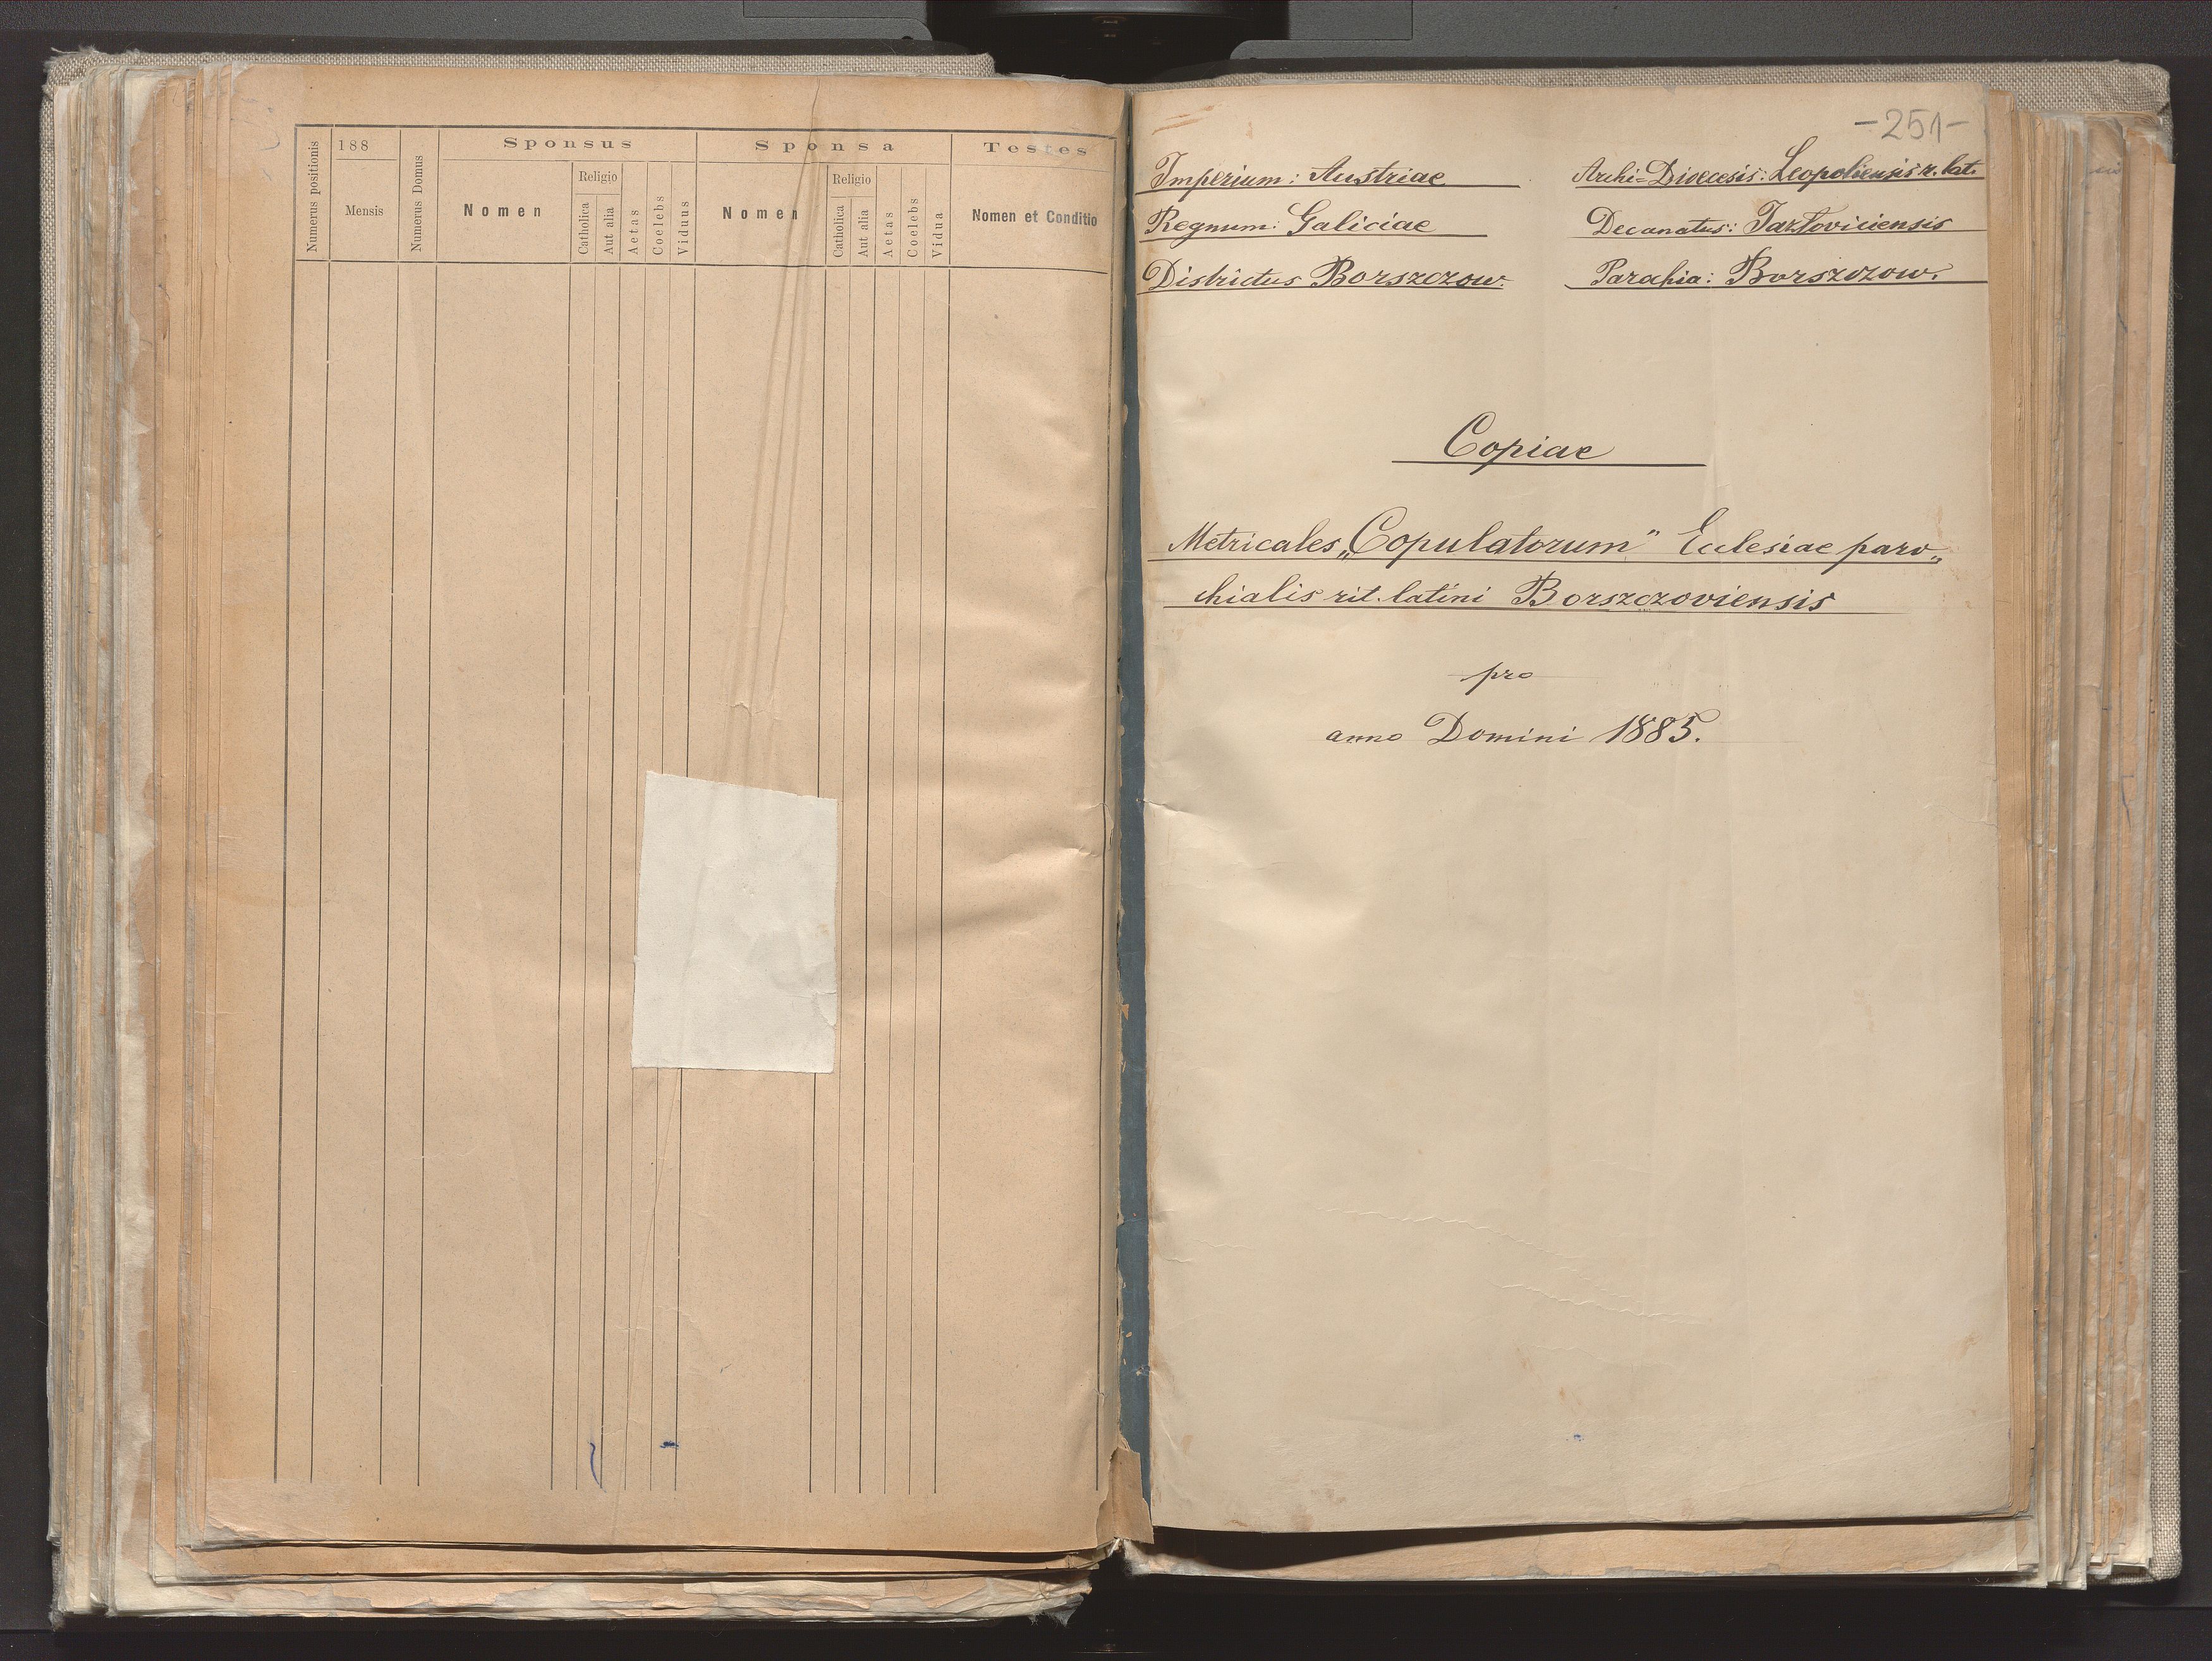 Numerus positionis
188
Mensis
Numerus Domus
Sponsus
Nomen
Religio
Catholica
Aut alia
Aetas
Coelebs
Viduus
Sponsa
Nomen
Religio
Catholica
Aut alia
Aetas
Coelebs
Vidua
Testes
Nomen et Conditio
-251-
Imperium: Austriae
Regnum: Galiciae
Districtus Borszczow.
Archi=Dioecesis: Leopoliensis r. lat.
Decanatus: Jazłoviciensis
Parahia: Borszczow.
Copiae
Metricales „Copulatorum" Ecclesiae paro„
chialis rit. latini Borszczoviensis
pro
anno Domini 1885.